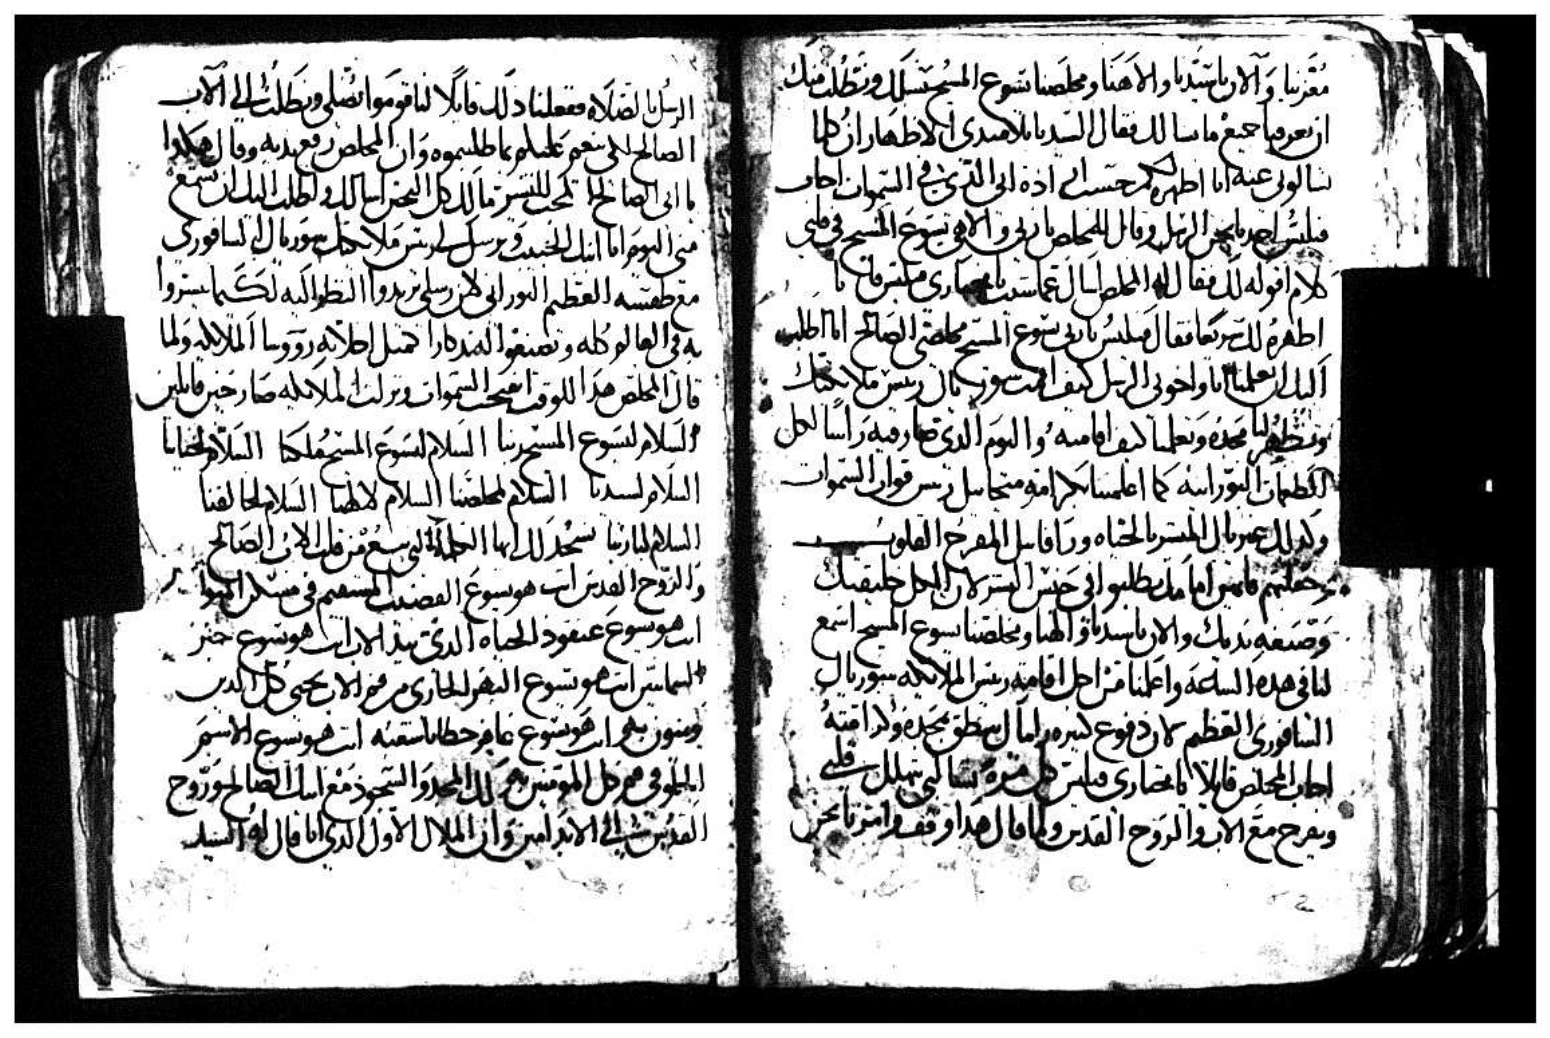 مقرنبا و الان يا سيدنا والاهنا ومخلصنا يسوع المسيح نسلك ونطلب منك
ان تعرفنا جميع ما سالناك فقال السيد يا تلاميدي الاطهار ان كلما
تسالوني عنه انا اظهره لكم حسب ارادة ابي الدي في السموات اجاب
فيلبس احد نحن الرسل وقال للمخلص يا ربي والاهي يسوع المسيح في قلبي
كلام اقوله لك فقال له المخلص اسال عما شيت يا مختاري فيلبس فانا
اظهره لك سريعا فقال فيلبس يا ربي يسوع المسيح مخلصي الصالح انا اطلب
اليك ان تعلمنا انا واخوتي الرسل كيف اقمت سوريال ريس ملايكتك
وتظهر لنا مجده وتعلمنا كيف اقامته واليوم الدي صار فيه راسا لكل
الطغمات النورانيه كما اعلمتنا بكرامة ميخاييل ريس قوات السموات
وكدلك غبريال المبشر بالحياه ورافاييل المفرح القلوب
وجعلتهم قايمين امامك يطلبوا في جنس البشر لان الكل خليقتك
وصنعة يديك والان يا سيدنا والهنا ومخلصنا يسوع المسيح اسمع
لنا في هده الساعه واعلمنا من اجل اقامة ريس الملايكه سوريال
السافوري العظيم لان دفوع كثيره لما ينطق بمجده ولم اقمته
اجاب المخلص قايلا يا مختاري فيلبس كل مره تسالني يتهلل قلبي
ويفرح مع الاب والروح القدس ولما قال هدا وقف وامرنا نحن
الرسل بالصلاه ففعلنا دلك قايلا لنا قوموا نصلي ونطلب الي الاب
الصالح لكي ينعم عليكم بما طلبتموه وان المخلص رفع يديه وقال هكدا
يا ابي الصالح محب البشر مالك كل اسالك واطلب اليك ان تسمع
مني اليوم انا ابنك الحبيب وترسل لي ريس ملايكتك سوريال السافوري
مع طقسه العظيم النوراني لان رسلي يريدوا النظر اليه لكيما يبشروا
به في العالم كله ويصنعوا له تدكارا كمثل اخوته رووسا الملايكه ولما
قال المخلص هدا للوقت انفتحت السموات ونزلت الملايكه صارخين قايلين
السلام ليسوع المسيح ربنا السلام ليسوع المسيح ملكنا السلام لحياتنا
السلام لسيدنا السلام لمخلصنا السلام لالهنا السلام لخالقنا
السلام لبارينا نسجد لك ايها الكلمة التي نبع من قلب الاب الصالح
والروح القدس انت هو يسوع القضيب المستقيم في مسكن
انت هو يسوع عنقود الحياه الدي بيد الاب انت هو يسوع خبز
السمايين انت هو يسوع النهر الجاري من فم الاب يحيي كل الدين
يومنون به انت هو يسوع غافر خطايا شعبه انت هو يسوع الاسم
الحلو في فم كل المومنين به لك المجد والسجود مع ابيك الصالح وروح
القدس الي الابد امين وان الملاك الاول الدي اتا قال له السيد